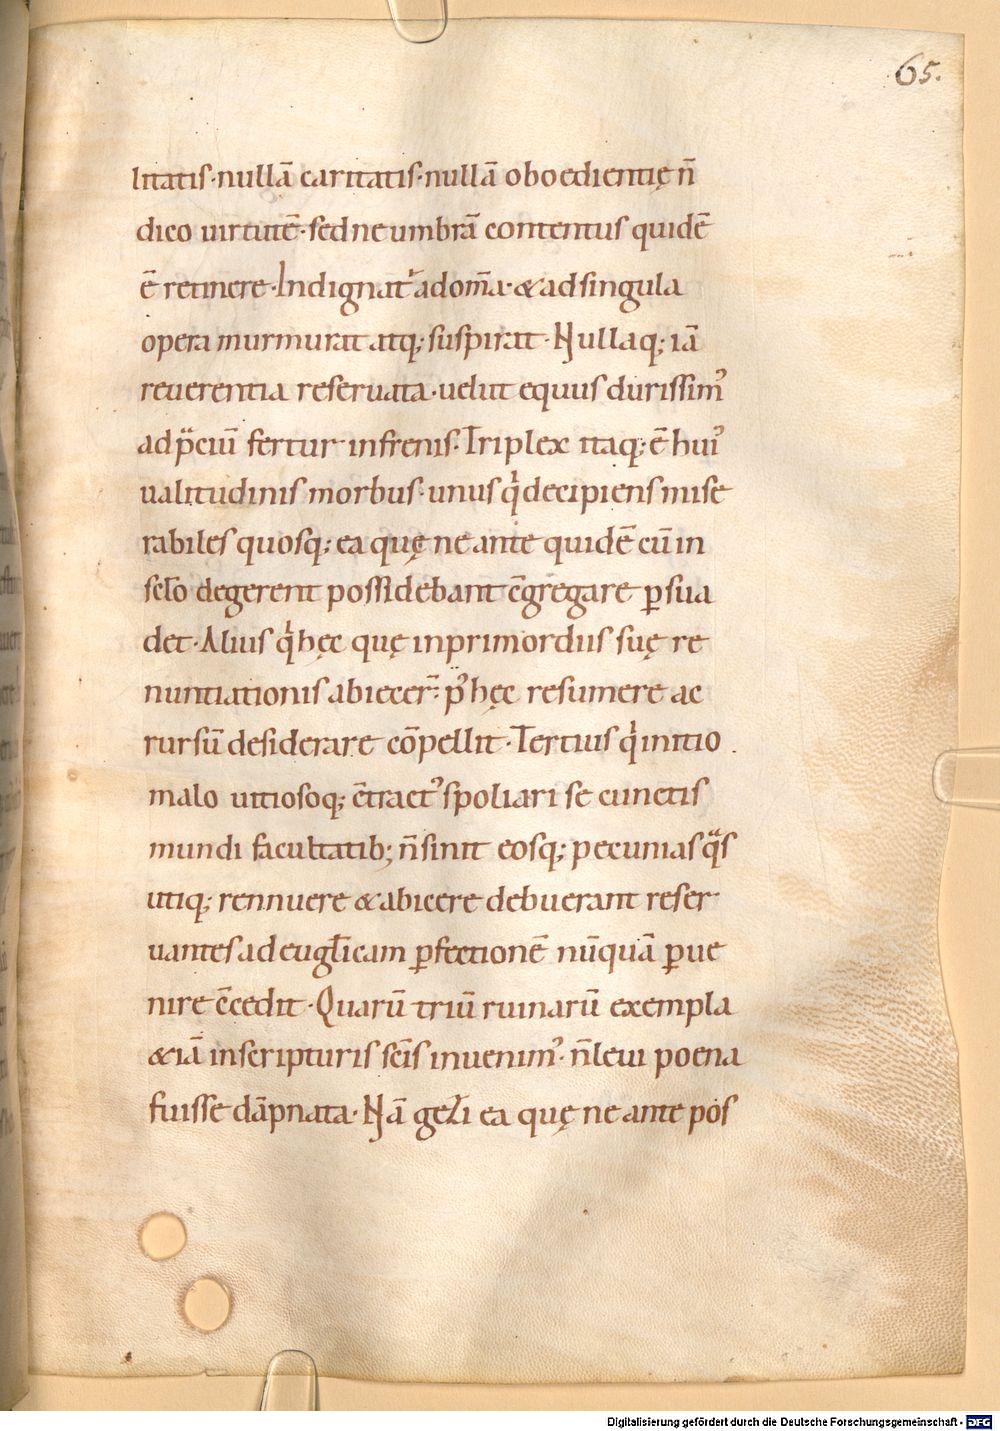 65.
litatis·nullā caritatis·nullā oboedientię n̄
dico uirtutē·sed ne umbrā contentus quidē
ē retinere·Indignat᷑ ad om̄a·&ad singula
opera murmurat atq; suspirat·Nullaq; iā
reuerentia reseruata·uelut equus durissim᾽
ad p̈cciū fertur infrenis·Triplex itaq; ē hui᾽
ualitudinis morbus·unus qͥ decipiens mise
rabiles quosq; ea quę ne ante quidē cū in
sc̄lo degerent possidebant c̄gregare ꝑsua
det·Alius qͥ hęc quę in primordiis suę re
nuntiationis abiecer̄· p᾽ hęc resumere ac
rursū desiderare cōpellit·Tertius qͥ initio
malo uitiosoq; c̄tract᾽ spoliari se cunctis
mundi facultatib; n̄ sinit eosq; pecunias qᷓs
utiq; rennuere &abicere debuerant reser
uantes ad eugl̄icam ꝑfectionē nūquā ꝑue
nire c̄cedit·Quarū triū ruinarū exempla
&iā in scripturis sc̄is inuenim᾽· n̄ leui poena
fuisse dāpnata·Nā gezi ea quę ne ante pos
Digitalisierung gefördert durch die Deutsche Forschungsgemeinschaft - DFG